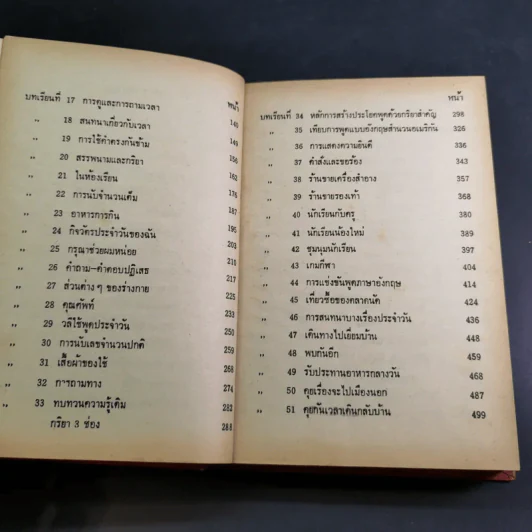 หน้า
บทเรียนที่ 17 การดูและการถามเวลา 140
,, 18 สนทนาเกี่ยวกับเวลา 149
,, 19 การใช้คำตรงกันข้าม 156
,, 20 สรรพนามและกริยา 162
,, 21 ในห้องเรียน 176
,, 22 การนับจำนวนเต็ม 186
,, 23 อาหารการกิน 195
,, 24 กิจวัตรประจำวันของฉัน 203
,, 25 กรุณาช่วยผมหน่อย 210
,, 26 คำถาม-คำตอบปฏิเสธ 217
,, 27 ส่วนต่าง ๆ ของร่างกาย 225
,, 28 คุณศัพท์ 238
,, 29 วลีใช้พูดประจำวัน 250
,, 30 การนับเลขจำนวนปกติ 259
,, 31 เสื้อผ้าของใช้ 268
,, 32 การถามทาง 274
,, 33 ทบทวนความรู้เดิม 282
กริยา 3 ช่อง 288
หน้า
บทเรียนที่ 34 หลักการสร้างประโยคพูดด้วยกริยาสำคัญ 298
,, 35 เทียบการพูดแบบอังกฤษสำนวนอเมริกัน 326
,, 36 การแสดงความยินดี 336
,, 37 คำสั่งและขอร้อง 343
,, 38 ร้านขายเครื่องสำอาง 357
,, 39 ร้านขายรองเท้า 368
,, 40 นักเรียนกับครู 380
,, 41 นักเรียนน้องใหม่ 389
,, 42 ชุมนุมนักเรียน 397
,, 43 เกมกีฬา 404
,, 44 การแข่งขันพูดภาษาอังกฤษ 414
,, 45 เที่ยวซื้อของตลาดนัด 424
,, 46 การสนทนาบางเรื่องประจำวัน 436
,, 47 เดินทางไปเยี่ยมบ้าน 448
,, 48 พบกันอีก 459
,, 49 รับประทานอาหารกลางวัน 468
,, 50 คุยเรื่องจะไปเมืองนอก 487
,, 51 คุยกันเวลาเดินกลับบ้าน 499